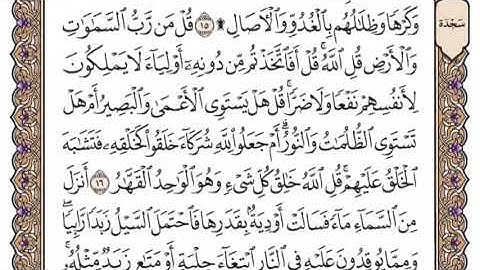 وَكَرْهًا وَظِلَـٰلُهُم بِٱلْغُدُوِّ وَٱلْـَٔاصَالِ ۩ ١٥ قُلْ مَن رَّبُّ ٱلسَّمَـٰوَٰتِ
سَجْدَة
وَٱلْأَرْضِ قُلِ ٱللَّهُ ۚ قُلْ أَفَٱتَّخَذْتُم مِّن دُونِهِۦٓ أَوْلِيَآءَ لَا يَمْلِكُونَ
لِأَنفُسِهِمْ نَفْعًا وَلَا ضَرًّا ۚ قُلْ هَلْ يَسْتَوِى ٱلْأَعْمَىٰ وَٱلْبَصِيرُ أَمْ هَلْ
تَسْتَوِى ٱلظُّلُمَـٰتُ وَٱلنُّورُ ۗ أَمْ جَعَلُوا۟ لِلَّهِ شُرَكَآءَ خَلَقُوا۟ كَخَلْقِهِۦ فَتَشَـٰبَهَ
ٱلْخَلْقُ عَلَيْهِمْ ۚ قُلِ ٱللَّهُ خَـٰلِقُ كُلِّ شَىْءٍ وَهُوَ ٱلْوَٰحِدُ ٱلْقَهَّـٰرُ ١٦ أَنزَلَ
مِنَ ٱلسَّمَآءِ مَآءً فَسَالَتْ أَوْدِيَةٌۢ بِقَدَرِهَا فَٱحْتَمَلَ ٱلسَّيْلُ زَبَدًا رَّابِيًا ۚ
وَمِمَّا يُوقِدُونَ عَلَيْهِ فِى ٱلنَّارِ ٱبْتِغَآءَ حِلْيَةٍ أَوْ مَتَـٰعٍ زَبَدٌ مِّثْلُهُۥ ۚ